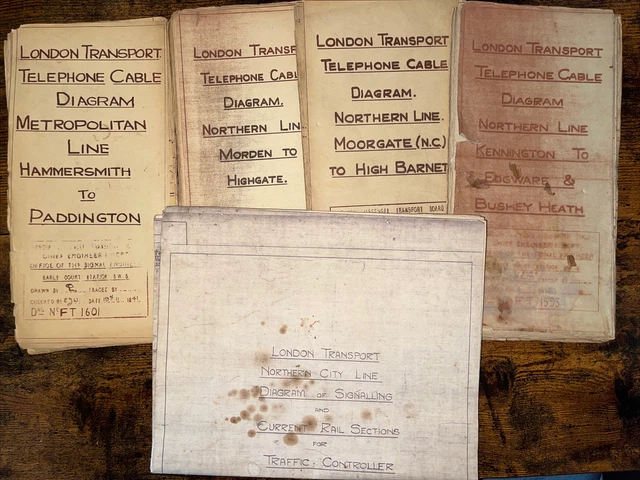 LONDON TRANSPORT
TELEPHONE CABLE
DIAGRAM
METROPOLITAN
LINE
HAMMERSMITH
TO
PADDINGTON
CHIEF ENGINEER
OFFICE OF THE SIGNAL
EARLS COURT STATION S.W.5
DRAWN BY TRACED BY
CHECKED BY DATE
DRG Nº FT 1601
LONDON TRANSP
TELEPHONE CABL
DIAGRAM.
NORTHERN LIN
MORDEN TO
HIGHGATE.
LONDON TRANSPORT
TELEPHONE CABLE
DIAGRAM.
NORTHERN LINE.
MOORGATE (N.C)
TO HIGH BARNET
TRANSPORT BOARD
LONDON TRANSPORT
TELEPHONE CABLE
DIAGRAM
NORTHERN LINE
KENNINGTON TO
EDGWARE &
BUSHEY HEATH
LONDON TRANSPORT
NORTHERN CITY LINE
DIAGRAM OF SIGNALLING
AND
CURRENT RAIL SECTIONS
FOR
TRAFFIC CONTROLLER